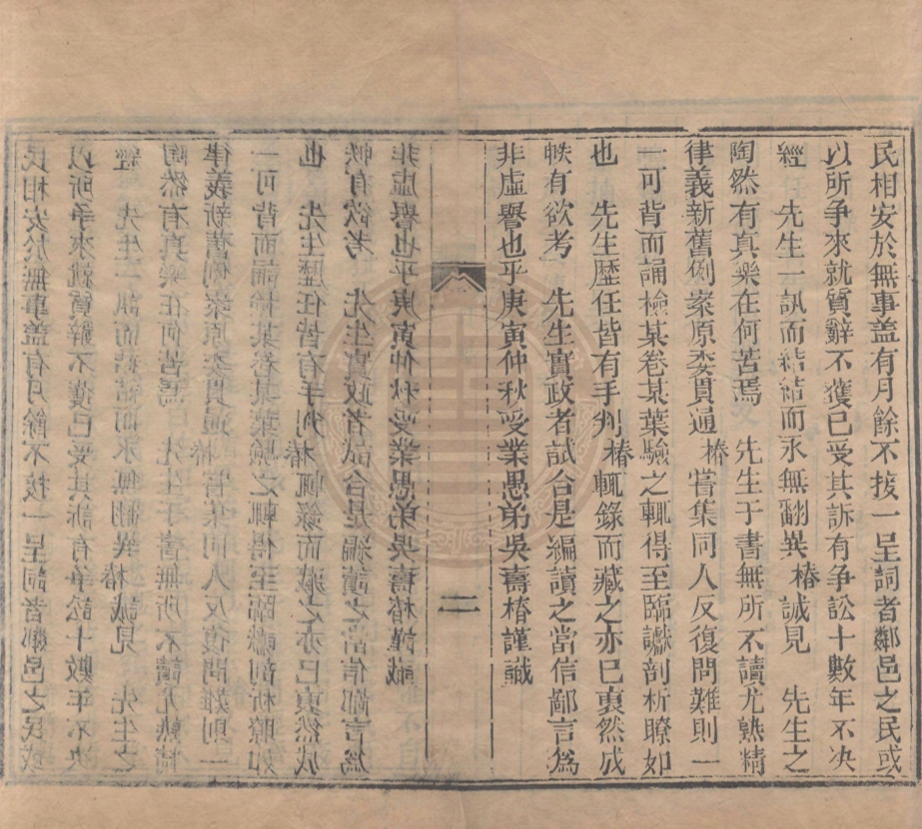 民相安於無事盖有月餘不接一呈詞者鄰邑之民或
以所争來就質辭不獲已受其訴有争訟十數年不决
經　先生一訊而結結而永無翻異椿誠見　先生之
陶然有真樂在何苦焉　先生于書無所不讀尤熟精
律義新舊例案原委貫通椿嘗集同人反復問難則一
一可背而誦檢某卷某葉驗之輒得至臨讞剖析瞭如
也　先生歷任皆有手判椿輒錄而藏之亦已裒然成
帙有欲考　先生實政者試合是編讀之當信鄙言為
非虛譽也乎庚寅仲秋受業愚弟吳壽椿謹識
二